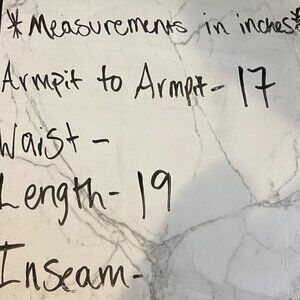 *Measurements in inches*
Armpit to Armpit- 17
Waist -
Length- 19
Inseam-